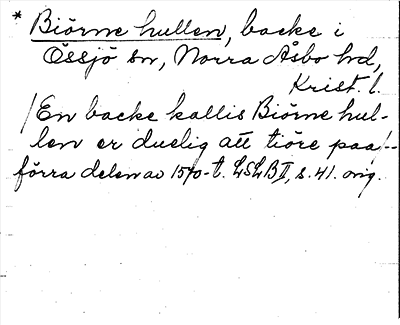 * Biörne hullen, backe i
Össjö sn, Norra Åsbo hd,
Krist. l.
/En backe kallis Biörne hul-
len er duelig att tiöre paa/-
förra delen av 1570-t. LSLB II, s. 41. orig.